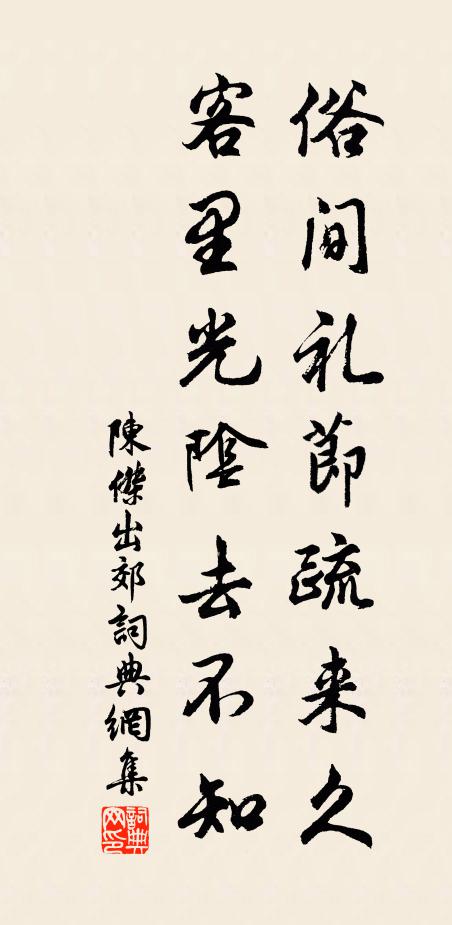 俗間礼節疏来久
客里光陰去不知
陳傑出郊詞典網集
詞典网印